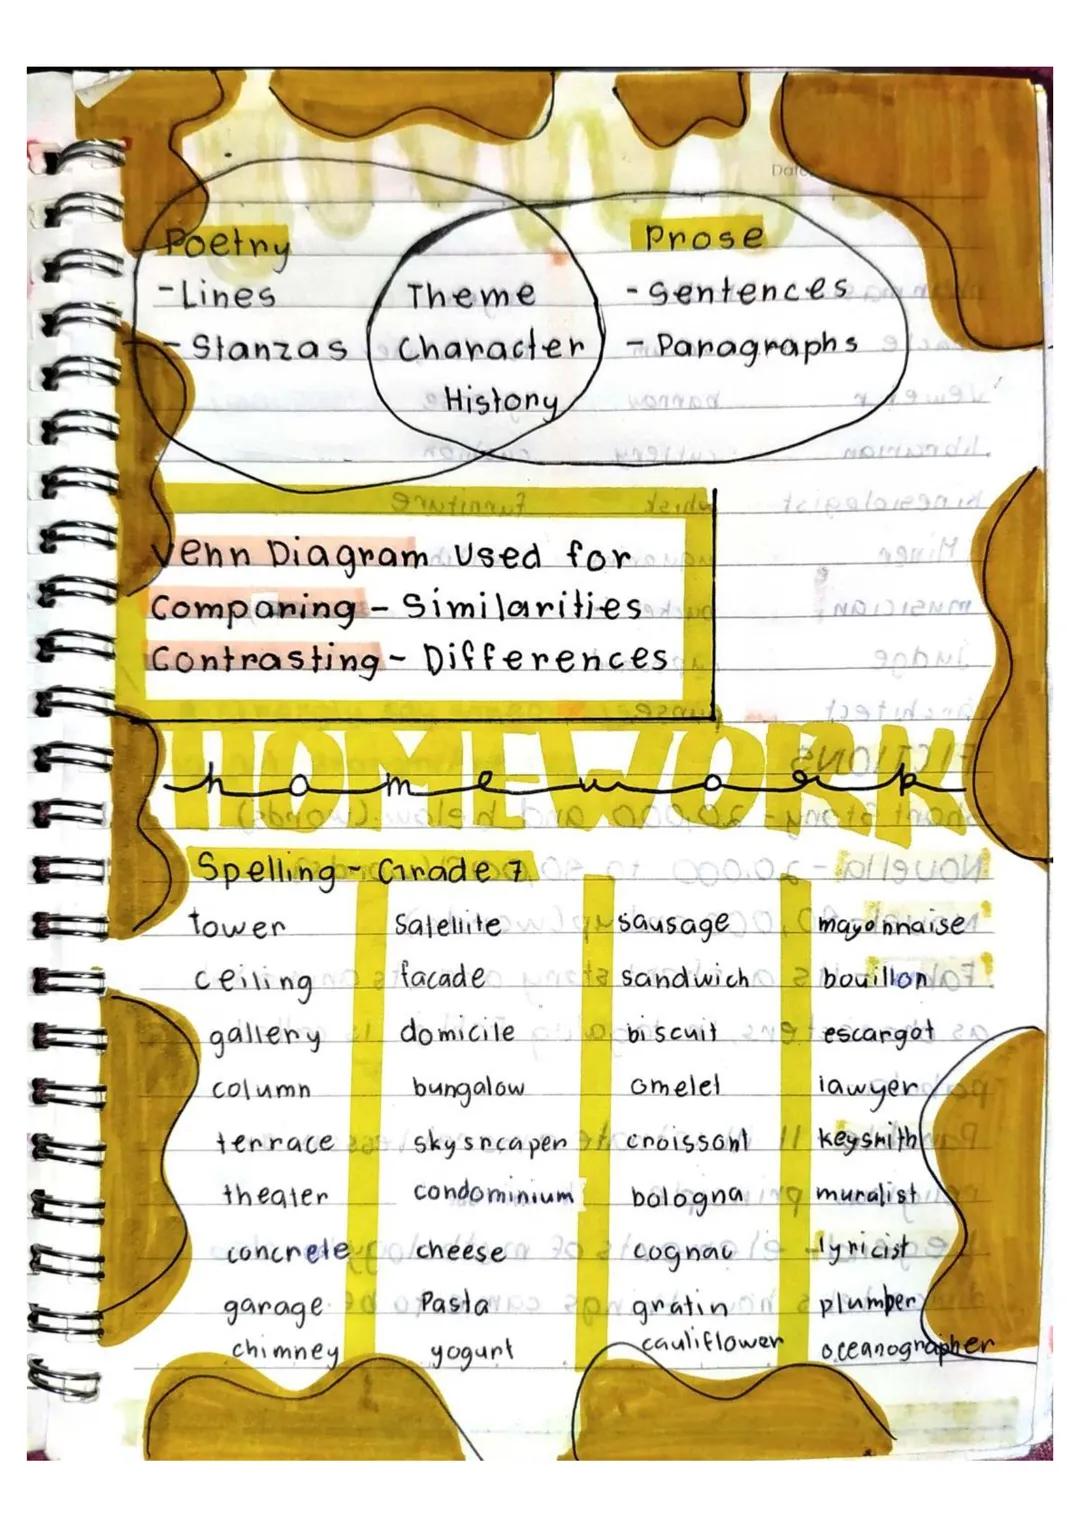 Date
Poetry Prose
-Lines Theme - Sentences
- Stanzas Character - Paragraphs
History
Venn Diagram Used for
Comparing - Similarities
Contrasting - Differences
HOMEWORK
homework
Spelling - Grade 7
tower Satellite sausage mayonnaise
ceiling facade sandwich bouillon
gallery domicile biscuit escargot
column bungalow omelet lawyer
terrace skyscraper croissant keysmith
theater condominium bologna muralist
concrete cheese cognac lyricist
garage Pasta gratin plumber
chimney yogurt cauliflower oceanographer